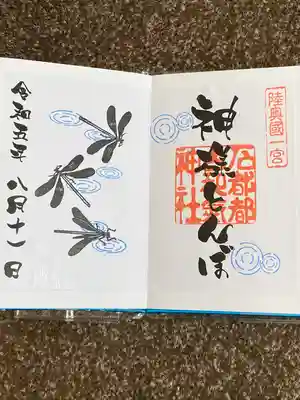 陸奥國一宮
神様とんぼ
石都都
古和氣
神社
令和五年
八月十一日